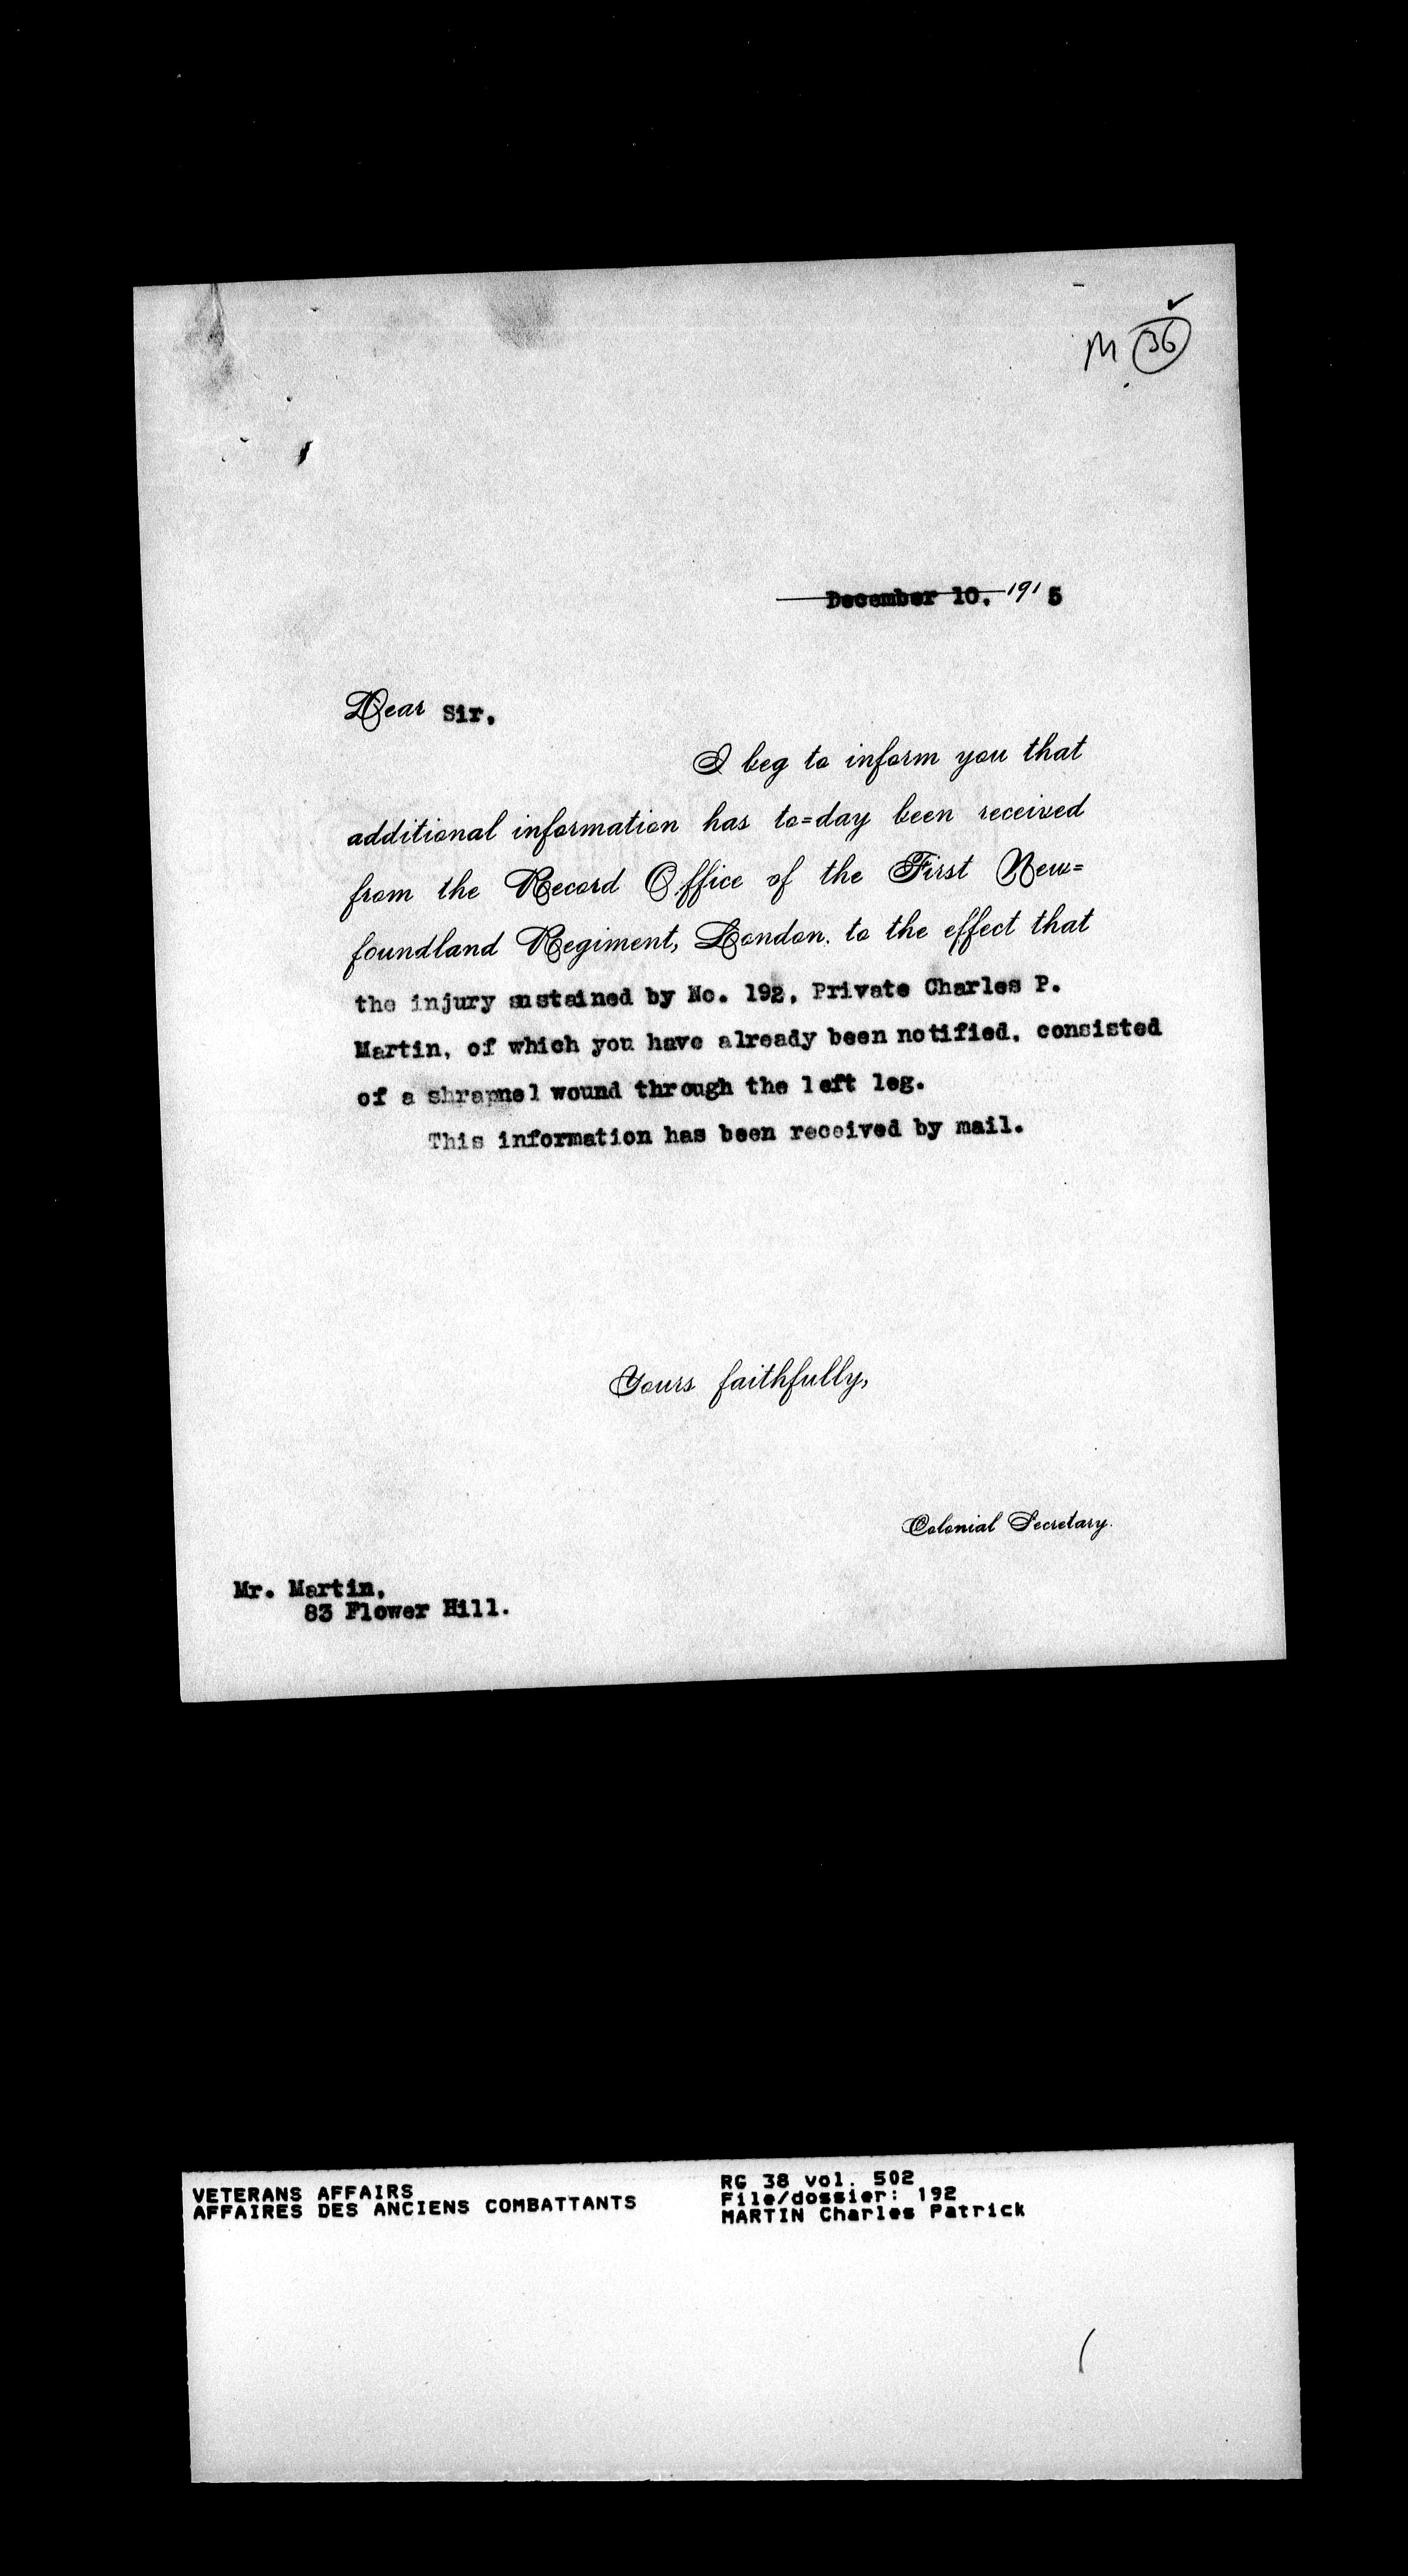 M 36
December 10, 1915
Dear Sir,
I beg to inform you that
additional information has to=day been received
from the Record Office of the First New=
foundland Regiment, London, to the effect that
the injury sustained by No. 192, Private Charles P.
Martin, of which you have already been notified, consisted
of a shrapnel wound through the left leg.
This information has been received by mail.
Yours faithfully,
Colonial Secretary.
Mr. Martin,
83 Flower Hill.
VETERANS AFFAIRS
AFFAIRES DES ANCIENS COMBATTANTS
RG 38 vol. 502
File/dossier: 192
MARTIN Charles Patrick